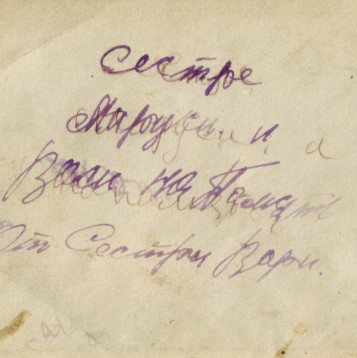 Сестре
Маруси и
Васи на Память
От Сестры Вари.